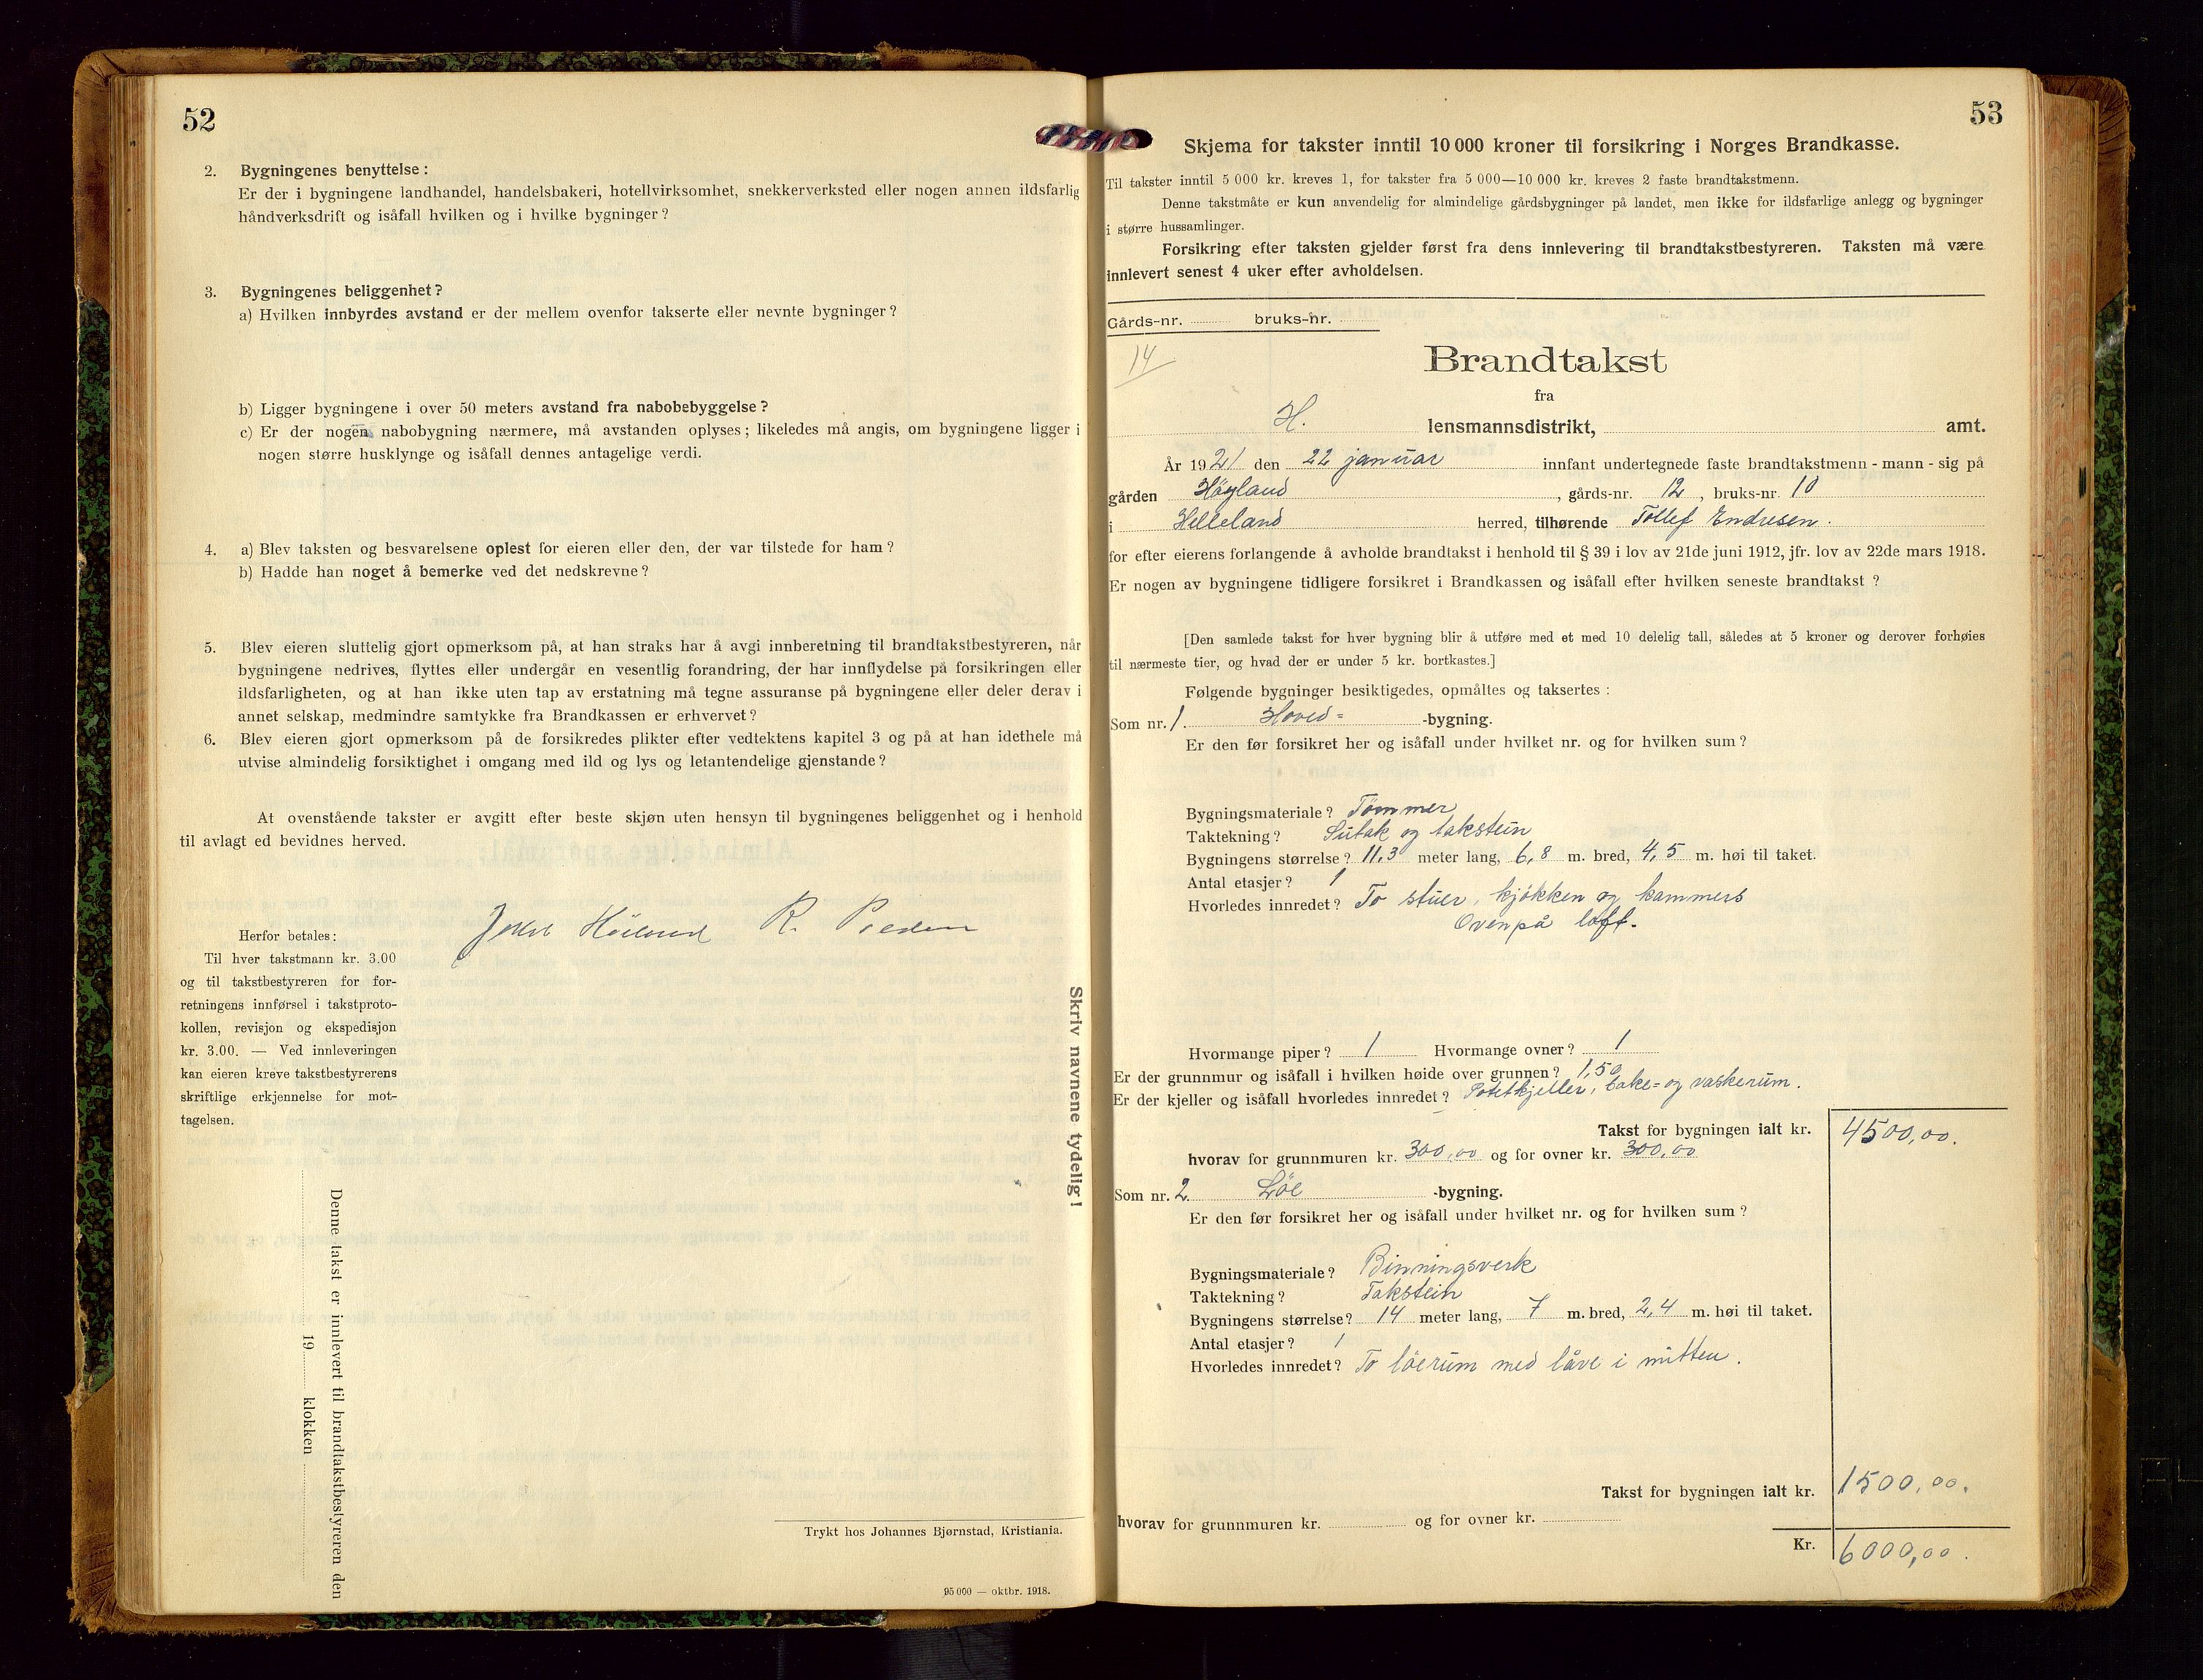 52
2. Bygningenes benyttelse:
Er der i bygningene landhandel, handelsbakeri, hotellvirksomhet, snekkerverksted eller nogen annen ildsfarlig
håndverksdrift og isåfall hvilken og i hvilke bygninger?
3. Bygningenes beliggenhet?
a) Hvilken innbyrdes avstand er der mellem ovenfor takserte eller nevnte bygninger?
b) Ligger bygningene i over 50 meters avstand fra nabobebyggelse?
c) Er der nogen nabobygning nærmere, må avstanden oplyses; likeledes må angis, om bygningene ligger i
nogen større husklynge og isåfall dennes antagelige verdi.
4. a) Blev taksten og besvarelsene oplest for eieren eller den, der var tilstede for ham?
b) Hadde han noget å bemerke ved det nedskrevne?
5. Blev eieren sluttelig gjort opmerksom på, at han straks har å avgi innberetning til brandtakstbestyreren, når
bygningene nedrives, flyttes eller undergår en vesentlig forandring, der har innflydelse på forsikringen eller
ildsfarligheten, og at han ikke uten tap av erstatning må tegne assuranse på bygningene eller deler derav i
annet selskap, medmindre samtykke fra Brandkassen er erhvervet?
6. Blev eieren gjort opmerksom på de forsikredes plikter efter vedtektens kapitel 3 og på at han idethele må
utvise almindelig forsiktighet i omgang med ild og lys og letantendelige gjenstande?
At ovenstående takster er avgitt efter beste skjøn uten hensyn til bygningenes beliggenhet og i henhold
til avlagt ed bevidnes herved.
R.
Herfor betales:
Til hver takstmann kr. 3.00
og til takstbestyreren for for-
retningens innførsel i takstproto-
kollen, revisjon og ekspedisjon
kr. 3.00. — Ved innleveringen
kan eieren kreve takstbestyrerens
skriftlige erkjennelse for mot-
tagelsen.
Skriv navnene tydelig!
Denne takst er innlevert til brandtakstbestyreren den
19 klokken
Trykt hos Johannes Bjørnstad, Kristiania.
95 000 — oktbr. 1918.
53
Skjema for takster inntil 10 000 kroner til forsikring i Norges Brandkasse.
Til takster inntil 5 000 kr. kreves 1, for takster fra 5 000—10 000 kr. kreves 2 faste brandtakstmenn.
Denne takstmåte er kun anvendelig for almindelige gårdsbygninger på landet, men ikke for ildsfarlige anlegg og bygninger
i større hussamlinger.
Forsikring efter taksten gjelder først fra dens innlevering til brandtakstbestyreren. Taksten må være
innlevert senest 4 uker efter avholdelsen.
Gårds-nr. bruks-nr.
14
Brandtakst
fra
H. lensmannsdistrikt, amt.
År 1921 den 22 januar innfant undertegnede faste brandtakstmenn - mann - sig på
gården Høyland, gårds-nr. 12, bruks-nr. 10
i Helleland herred, tilhørende Tollef Endresen.
for efter eierens forlangende å avholde brandtakst i henhold til § 39 i lov av 21de juni 1912, jfr. lov av 22de mars 1918.
Er nogen av bygningene tidligere forsikret i Brandkassen og isåfall efter hvilken seneste brandtakst?
[Den samlede takst for hver bygning blir å utføre med et med 10 delelig tall, således at 5 kroner og derover forhøies
til nærmeste tier, og hvad der er under 5 kr. bortkastes.]
Følgende bygninger besiktigedes, opmåltes og taksertes:
Som nr. 1. Hoved= -bygning.
Er den før forsikret her og isåfall under hvilket nr. og for hvilken sum?
Bygningsmateriale? Tømmer
Taktekning? Sutak og takstein
Bygningens størrelse? 11,3 meter lang, 6,8 m. bred, 4,5 m. høi til taket.
Antal etasjer? 1
Hvorledes innredet? To stuer, kjøkken og kammers
Ovenpå loft.
Hvormange piper? 1 Hvormange ovner? 1
Er der grunnmur og isåfall i hvilken høide over grunnen? 1,50
Er der kjeller og isåfall hvorledes innredet? Potetkjeller, bake= og vaskerum.
Takst for bygningen ialt kr. 4500,00.
hvorav for grunnmuren kr. 300,00 og for ovner kr. 300,00
Som nr. 2. Löe -bygning.
Er den før forsikret her og isåfall under hvilket nr. og for hvilken sum?
Bygningsmateriale? Binningsverk
Taktekning? Takstein
Bygningens størrelse? 14 meter lang, 7 m. bred, 2,4 m. høi til taket.
Antal etasjer? 1
Hvorledes innredet? To löerum med låve i mitten.
Takst for bygningen ialt kr. 1500,00.
hvorav for grunnmuren kr. og for ovner kr.
Kr. 6000,00.